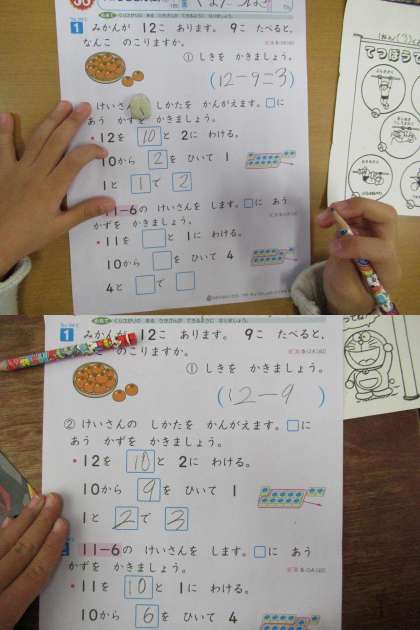 1 みかんが 12こ あります。 9こ たべると、
なんこ のこりますか。
① しきを かきましょう。
(12-9=3)
けいさん しかたを かんがえます。□に
あう かずを かきましょう。
• 12を 10 と 2に わける。
10から 2 を ひいて 1
1と 1 で 2
11-6の けいさんを します。□に あう
かずを かきましょう。
• 11を □と 1に わける。
10から □を ひいて 4
4と □で □
てつぼう
1 みかんが 12こ あります。 9こ たべると、
のこりますか。
① しきを かきましょう。
(12-9 )
② けいさんの しかたを かんがえます。□に
あう かずを かきましょう。
• 12を 10 と 2に わける。
10から 9 を ひいて 1
1と 2 で 3
11-6の けいさんを します。□に あう
かずを かきましょう。
• 11を 10 と 1に わける。
10から 6 を ひいて 4